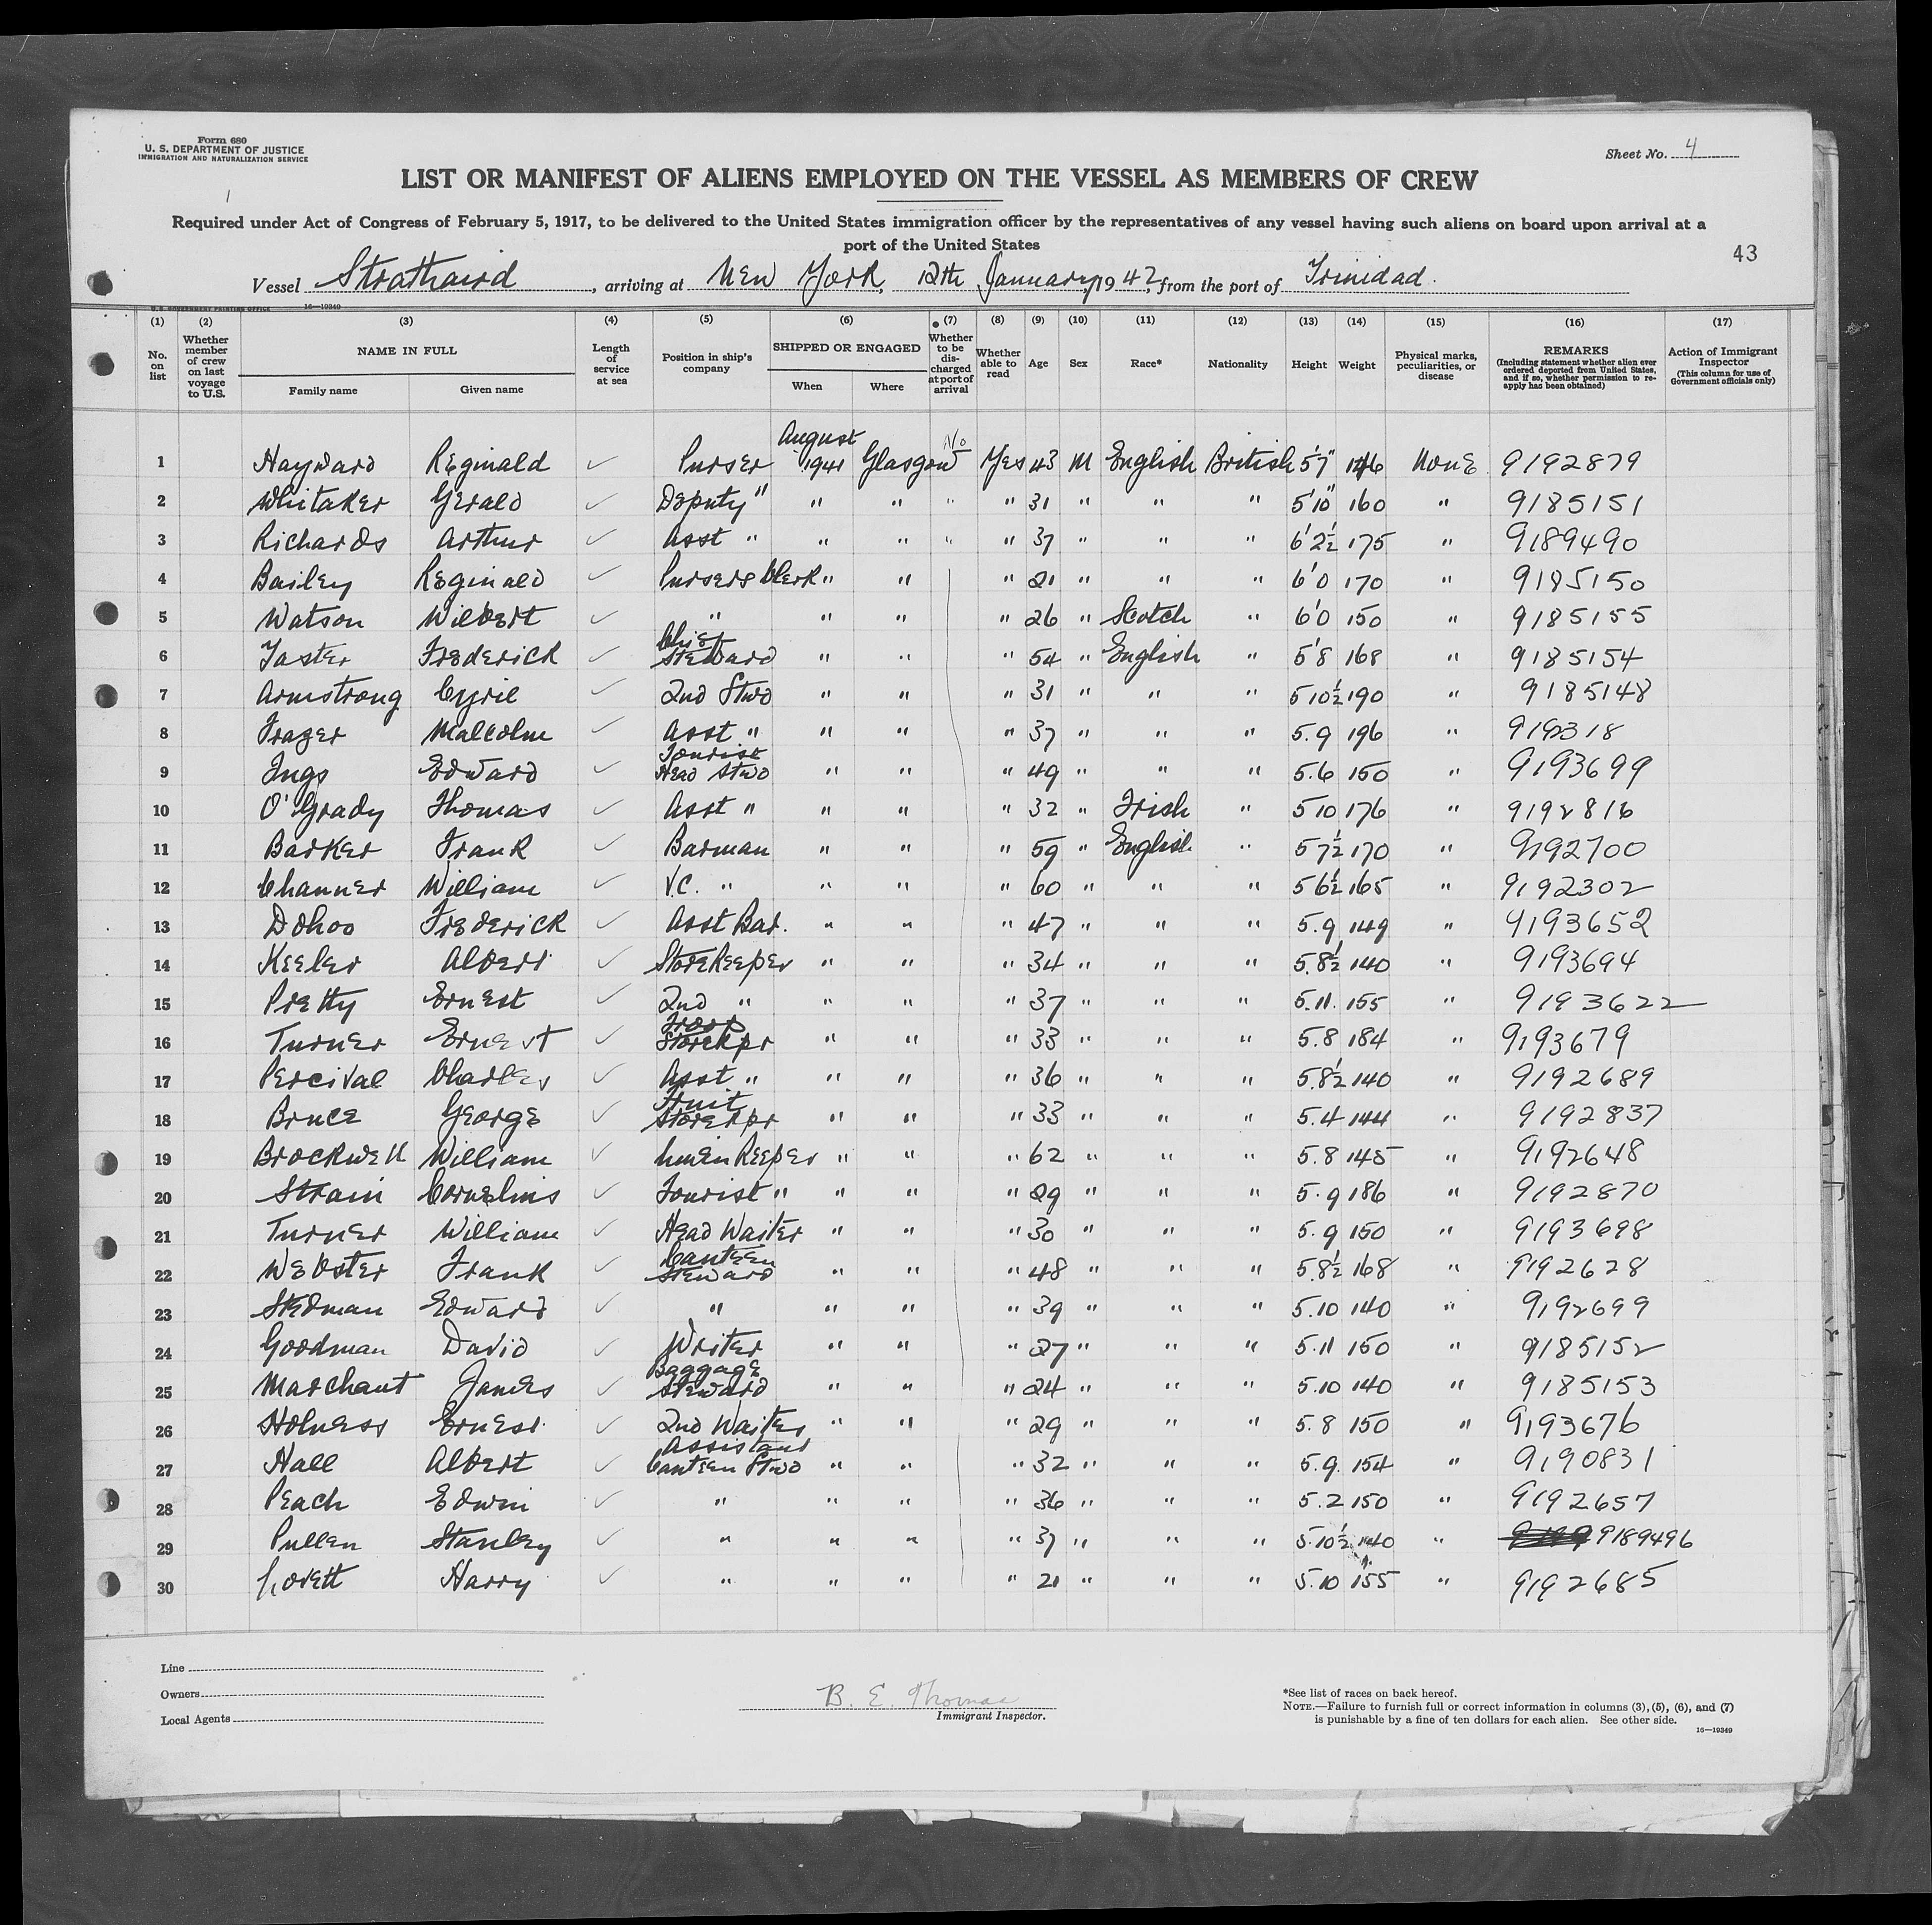 Form 680
U. S. DEPARTMENT OF JUSTICE
IMMIGRATION AND NATURALIZATION SERVICE
Sheet No. 4
LIST OR MANIFEST OF ALIENS EMPLOYED ON THE VESSEL AS MEMBERS OF CREW
Required under Act of Congress of February 5, 1917, to be delivered to the United States immigration officer by the representatives of any vessel having such aliens on board upon arrival at a
port of the United States
43
Vessel Strathaird, arriving at New York, 12th January, 1942, from the port of Trinidad.
U.S. GOVERNMENT PRINTING OFFICE 16—19349
(1) (2) (3) (4) (5) (6) (7) (8) (9) (10) (11) (12) (13) (14) (15) (16) (17)
No. on list
Whether member of crew on last voyage to U.S.
NAME IN FULL
Family name Given name
Length of service at sea
Position in ship's company
SHIPPED OR ENGAGED
When Where
Whether to be discharged at port of arrival
Whether able to read
Age
Sex
Race*
Nationality
Height
Weight
Physical marks, peculiarities, or disease
REMARKS
(Including statement whether alien ever ordered deported from United States, and if so, whether permission to reapply has been obtained)
Action of Immigrant Inspector
(This column for use of Government officials only)
1 Hayward Reginald ✓ Purser August 1941 Glasgow No Yes 43 M English British 5'7" 146 None 9192879
2 Whitaker Gerald ✓ Deputy " " " " " 31 " " " 5'10" 160 " 9185151
3 Richards Arthur ✓ Asst " " " " " 37 " " " 6'2½ 175 " 9189490
4 Bailey Reginald ✓ Pursers Clerk " " " 21 " " " 6'0 170 " 9185150
5 Watson Wilbert ✓ " " " " 26 " Scotch " 6'0 150 " 9185155
6 Frederick ✓ Chief Steward " " " 54 " English " 5'8 168 " 9185154
7 Armstrong Cyril ✓ 2nd Stwd " " " 31 " " " 5 10½ 190 " 9185148
8 Frazer Malcolm ✓ Asst " " " " 37 " " " 5.9 196 "
9 Ings Edward ✓ Tourist Head Stwd " " " 49 " " " 5.6 150 " 9193699
10 O'Grady Thomas ✓ Asst " " " " 32 " Irish " 5 10 176 " 9192816
11 Barker Frank ✓ Barman " " " 59 " English " 5 7½ 170 " 9192700
12 Channer William ✓ V.C. " " " " 60 " " " 5 6½ 165 " 9192302
13 Dohoo Frederick ✓ Asst Bar. " " " 47 " " " 5.9 149 " 9193652
14 Keeler Albert ✓ Storekeeper " " " 34 " " " 5.8½ 140 " 9193694
15 Pretty Ernest ✓ 2nd " " " " 37 " " " 5.11. 155 " 9193622
16 Turner Ernest ✓ Troop Storekpr " " " 33 " " " 5.8 184 " 9193679
17 Percival Charles ✓ Asst " " " " 36 " " " 5.8½ 140 " 9192689
18 Bruce George ✓ Fruit Storekpr " " " 33 " " " 5.4 144 " 9192837
19 Brockwell William ✓ Linen Keeper " " " 62 " " " 5.8 145 " 9192648
20 Strain Cornelius ✓ Tourist " " " " 29 " " " 5.9 186 " 9192870
21 Turner William ✓ Head Waiter " " " 30 " " " 5.9 150 " 9193698
22 Webster Frank ✓ Canteen Steward " " " 48 " " " 5.8½ 168 " 9192628
23 Stedman Edward ✓ " " " " 39 " " " 5.10 140 " 9192699
24 Goodman David ✓ Writer " " " 27 " " " 5.11 150 " 9185152
25 Marchant James ✓ Baggage Steward " " " 24 " " " 5.10 140 " 9185153
26 Holness Ernest ✓ 2nd Waiter " " " 29 " " " 5.8 150 " 9193676
27 Hall Albert ✓ Assistant Canteen Stwd " " " 32 " " " 5.9. 154 " 9190831
28 Peach Edwin ✓ " " " " 36 " " " 5.2 150 " 9192657
29 Pullen Stanley ✓ " " " " 37 " " " 5.10½ 140 " 9189496
30 Lovett Harry ✓ " " " " 21 " " " 5.10 155 " 9192685
Line
Owners
Local Agents
B. E. Thomas
Immigrant Inspector.
*See list of races on back hereof.
NOTE.—Failure to furnish full or correct information in columns (3), (5), (6), and (7)
is punishable by a fine of ten dollars for each alien. See other side.
16—19349